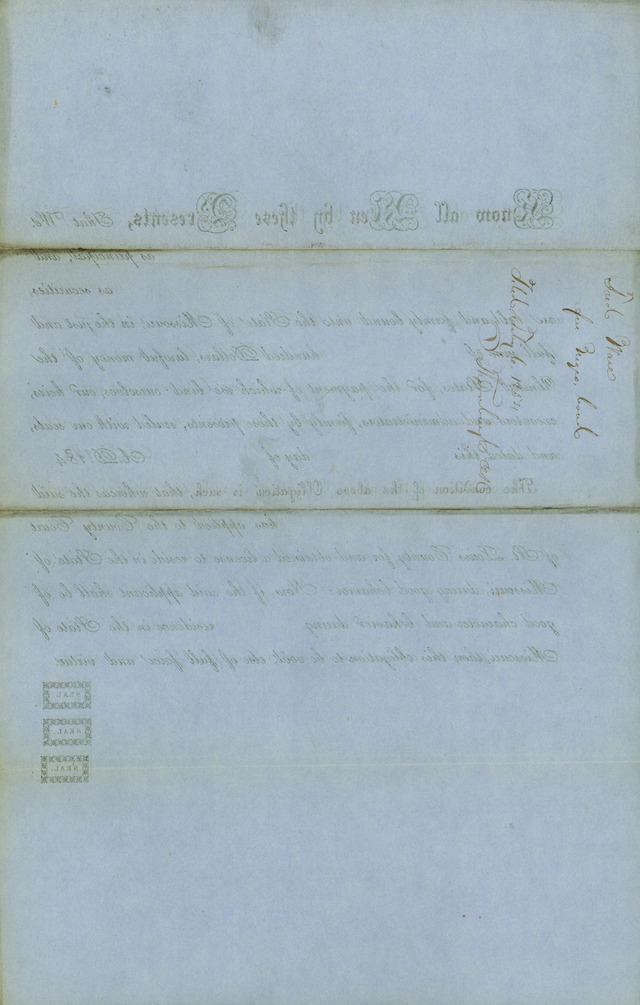 Know all Men by these Presents, That We
as principal, and
as securities,
and firmly bound unto the State of Missouri in the just and
hundred Dollars, lawful money of the
States, for the payment of which we bind ourselves, our heirs,
executors and administrators, firmly by these presents, sealed with our seals,
and dated this day of A.D. 184
The condition of the above Obligation is such, that whereas the said
has applied to the County Court
of St. Louis County for and obtained a license to reside in the State of
Missouri, during good behavior: Now, if the said applicant shall be of
good character and behavior during residence in the State of
Missouri, then this obligation to be void, else of full force and virtue.
SEAL
SEAL
SEAL
Ware
Negro bond
Filed 1854